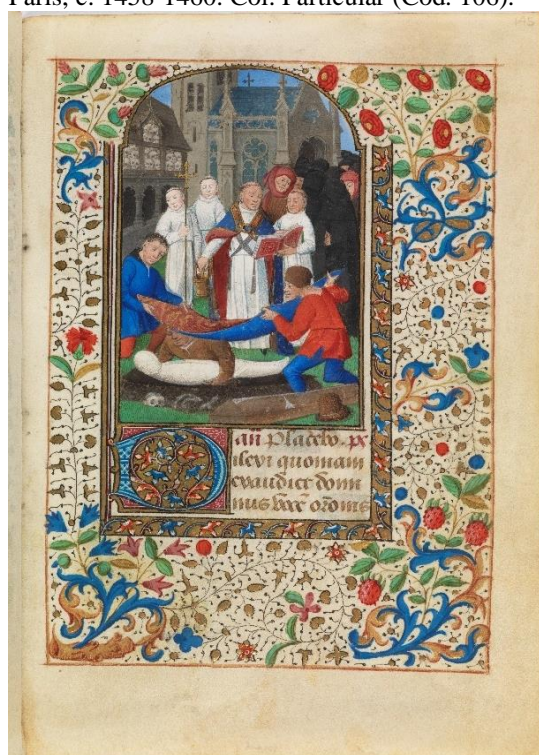 Paris, c. 1458-1460. Col. Particular (Cod. 106).
an Placebo. ps
Dilexi quoniam
exaudiet domi
nus vocē orōnis